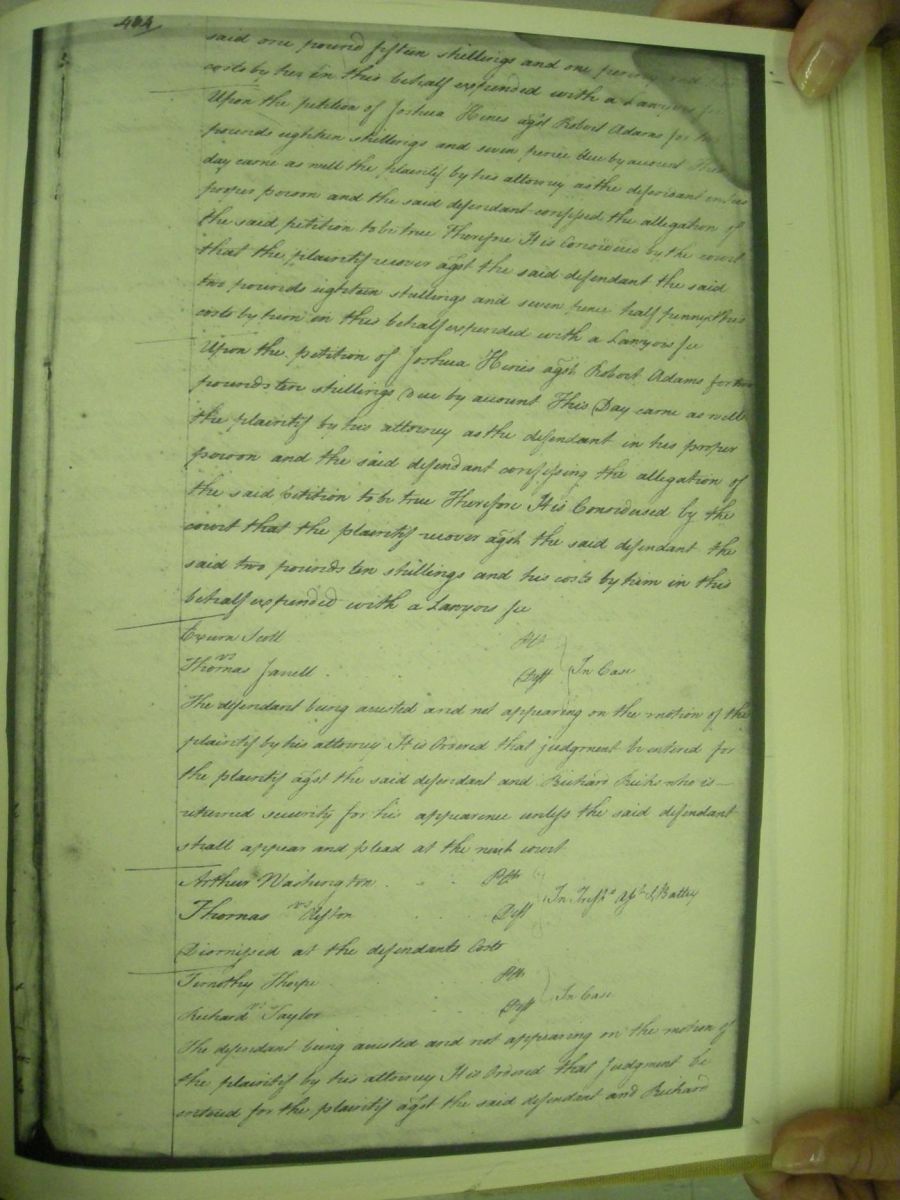 464
said one pound fifteen shillings and one penny and
costs by her in this behalf expended with a Lawyers fee
Upon the petition of Joshua Hines agst Robert Adams for two
pounds eighteen shillings and seven pence due by account This
day came as well the plaintif by his attorney as the defendant in his
proper person and the said defendant confessed the allegation of
the said petition to be true Therefore It is Considered by the court
that the plaintif recover agst the said defendant the said
two pounds eighteen shillings and seven pence half penny & his
costs by him in this behalf expended with a Lawyers fee
Upon the petition of Joshua Hines agst Robert Adams for two
pounds ten shillings due by account This Day came as well
the plaintif by his attorney as the defendant in his proper
person and the said defendant confessing the allegation of
the said petition to be true Therefore It is Considered by the
court that the plaintif recover agst the said defendant the
said two pounds ten shillings and his costs by him in this
behalf expended with a Lawyers fee
Exum Scott Plt
vs
Thomas Jarrell Deft In Case
The defendant being arrested and not appearing on the motion of the
plaintif by his attorney It is Ordered that judgment be entered for
the plaintif agst the said defendant and Richard Ricks who is
returned security for his appearence unless the said defendant
shall appear and plead at the next court
Arthur Washington Plt
Thomas vs Clifton Deft In Tresps Asst & Battey
Dismissed at the defendants Costs
Timothy Thorpe Plt
Richard vs Taylor Deft In Case
The defendant being arrested and not appearing on the motion of
the plaintif by his attorney It is Ordered that Judgment be
entered for the plaintif agst the said defendant and Richard